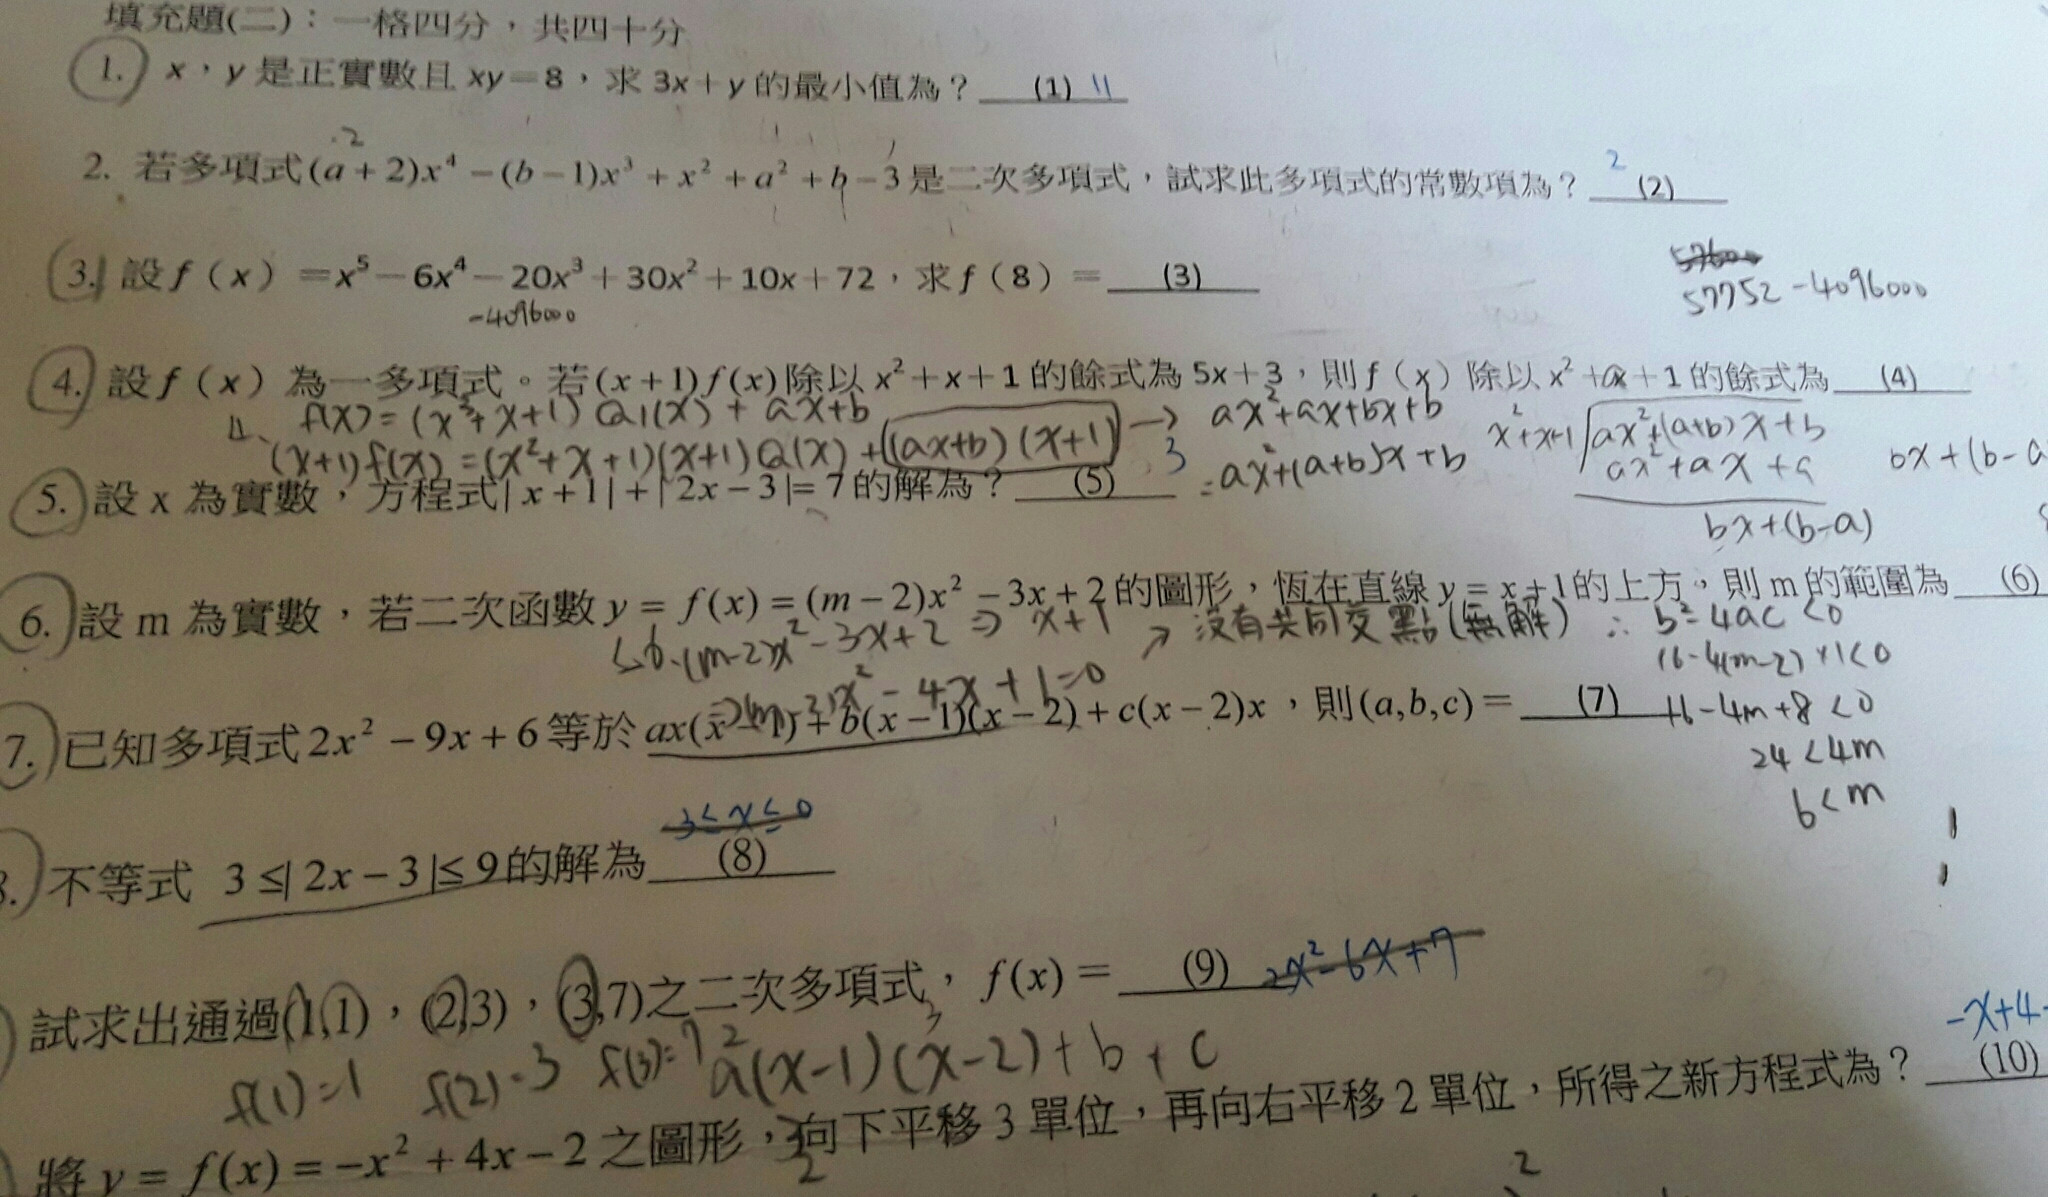 填充題(二)：一格四分，共四十分
1. x，y 是正實數且 xy＝8，求 3x＋y 的最小值為？ (1) 11
2
2. 若多項式(a+2)x⁴−(b−1)x³+x²+a²+b−3是二次多項式，試求此多項式的常數項為？ (2) 2
3. 設 f（x）＝x⁵－6x⁴－20x³＋30x²＋10x＋72，求 f（8）＝ (3)
-4096000
57752 -4096000
4. 設 f（x）為一多項式。若(x+1)f(x)除以 x²＋x＋1 的餘式為 5x＋3，則 f（x）除以 x²＋x＋1 的餘式為 (4)
4. f(x) = (x²+x+1) Q1(x) + ax+b
(x+1)f(x) = (x²+x+1)(x+1)Q(x) + (ax+b)(x+1) → ax²+ax+bx+b
= ax²+(a+b)x+b
x²+x+1 ax²+(a+b)x+b
ax²+ax+a
bx+(b-a)
bx+(b-a
5. 設 x 為實數，方程式|x+1|+|2x−3|=7的解為？ (5) 3
6. 設 m 為實數，若二次函數 y=f(x)=(m−2)x²−3x+2的圖形，恆在直線 y=x+1的上方，則 m 的範圍為 (6)
(m-2)x²-3x+2 ⇒ x+1 ↗ 沒有共同交點(無解) ∴ b²-4ac<0
⇒(m-2)x²-4x+1=0
16-4(m-2)×1<0
16-4m+8<0
24<4m
6<m
7. 已知多項式2x²−9x+6等於ax(x−1)+b(x−1)(x−2)+c(x−2)x，則(a,b,c)= (7)
3≤x≤0
8. 不等式 3≤|2x−3|≤9的解為 (8)
試求出通過(1,1)，(2,3)，(3,7)之二次多項式，f(x)= (9) 2x²-6x+7
f(1)=1 f(2)=3 f(3)=7 a(x-1)(x-2)+b+c
將 y=f(x)=−x²+4x−2之圖形，向下平移 3 單位，再向右平移 2 單位，所得之新方程式為？ (10) -x+4